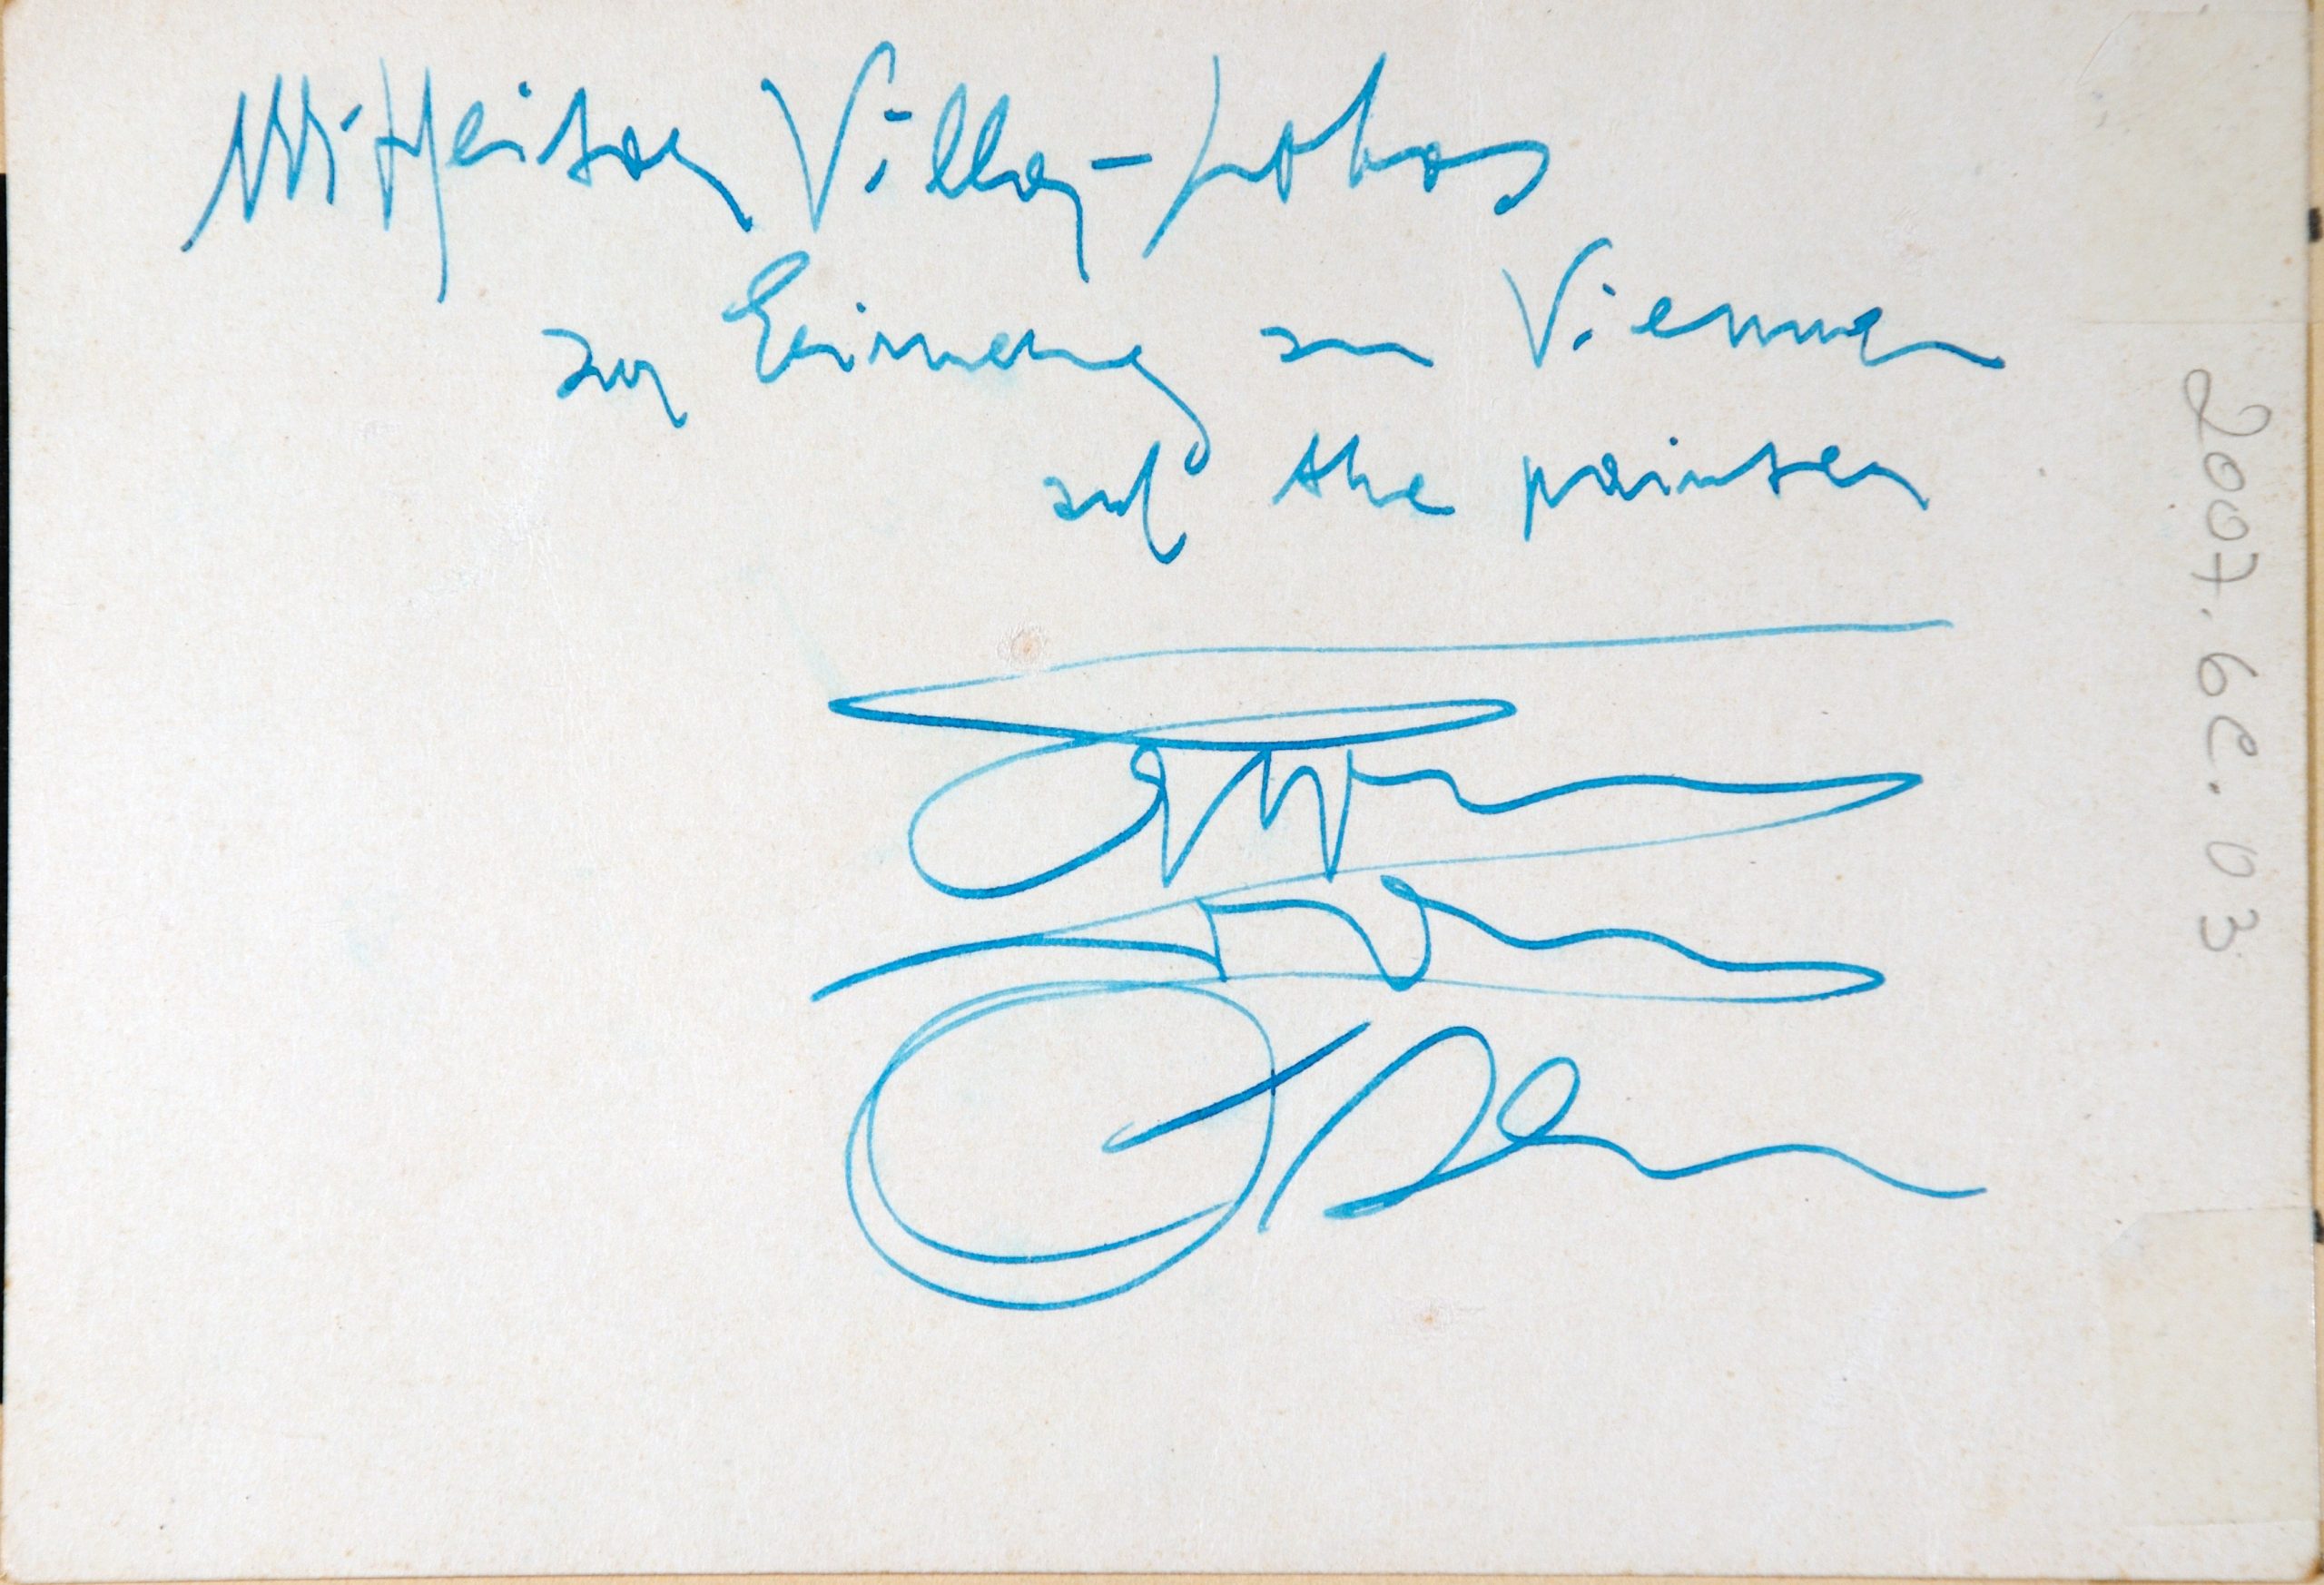 Mr Heitor Villa-Lobos
zur Erinnerung an Vienna
auf the painter
2007.6e.03